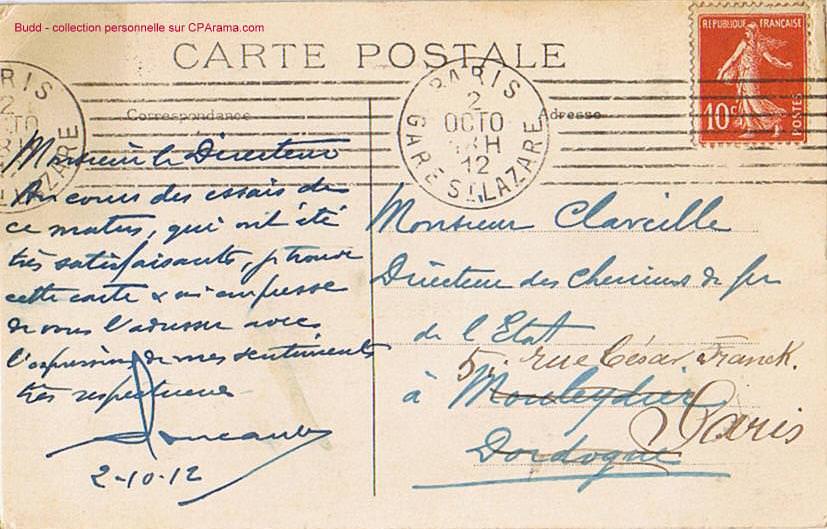 Budd - collection personnelle sur CPArama.com
CARTE POSTALE
RÉPUBLIQUE FRANÇAISE
10c
POSTES
PARIS
2
OCTO
12
GARE ST LAZARE
Correspondance
Adresse
Monsieur le Directeur
Au cours des essais de
ce matin, qui ont été
très satisfaisants, je trouve
cette carte & m'empresse
de vous l'adresser avec
l'expression de mes sentiments
très respectueux
2-10-12
Monsieur Claveille
Directeur des Chemins de fer
de l'Etat
5, rue César Franck.
à Mouleydier
Paris
Dordogne